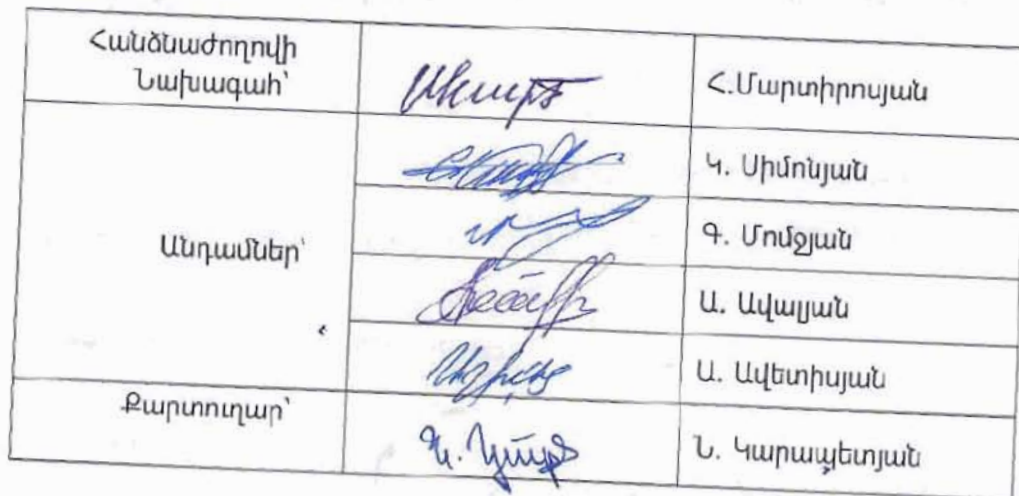 Հանձնաժողովի
Նախագահ՝
Հ.Մարտիրոսյան
Կ. Սիմոնյան
Անդամներ՝
Գ. Մոմջյան
Ա. Ավալյան
Ա. Ավետիսյան
Քարտուղար՝
Ն. Կարապետյան